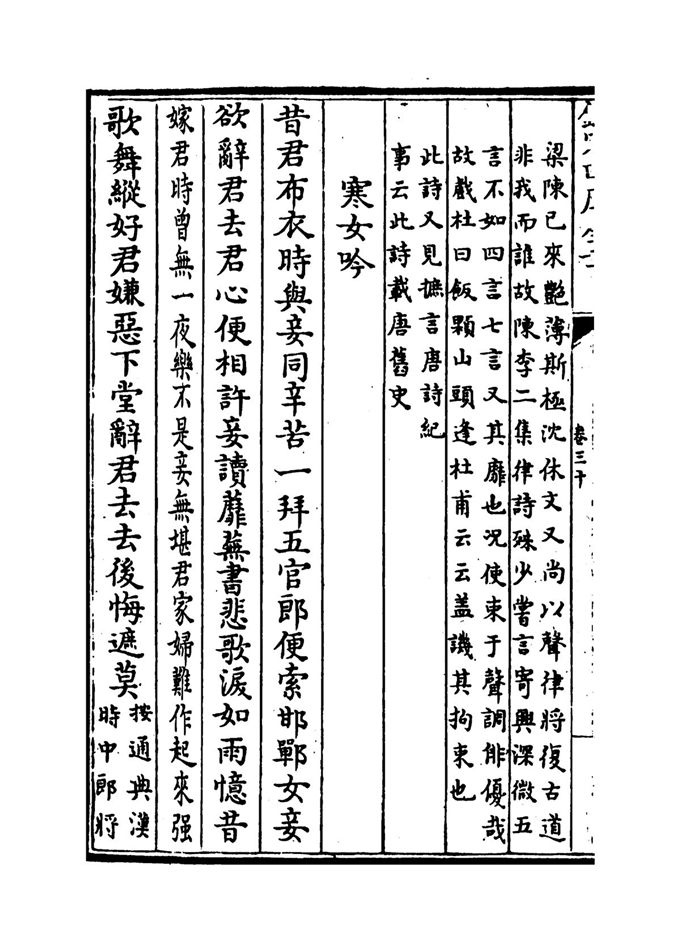 卷三十
梁陳已來艷薄斯極沈休文又尚以聲律將復古道
非我而誰故陳李二集律詩殊少嘗言寄興深微五
言不如四言七言又其靡也况使束于聲調俳優哉
故戲杜曰飯顆山頭逢杜甫云云盖譏其拘束也
此詩又見摭言唐詩紀
事云此詩載唐舊史
寒女吟
昔君布衣時與妾同辛苦一拜五官郎便索邯鄲女妾
欲辭君去君心便相許妾讀蘼蕪書悲歌淚如雨憶昔
嫁君時曾無一夜樂不是妾無堪君家婦難作起來强
歌舞縱好君嫌惡下堂辭君去去後悔遮莫
按通典漢
時中郎將